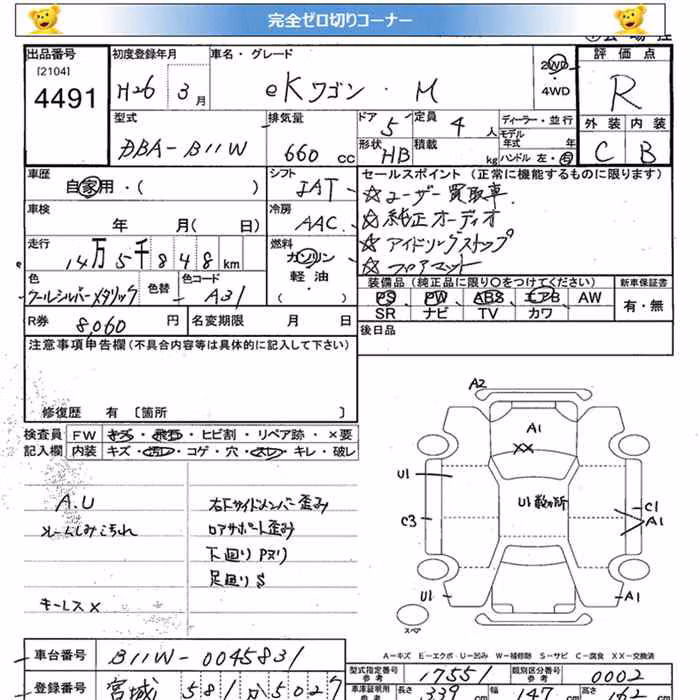 完全ゼロ切りコーナー
出品番号 [2104] 4491
初度登録年月 H26年 3月
車名・グレード eKワゴン・M
2WD 4WD
評価点 R
外装 C 内装 B
型式 DBA-B11W
排気量 660 cc
ドア 5 定員 4 人
形状 HB 積載 kg
ディーラー・並行
モデル年式 年式
ハンドル 左・右
車歴 自家用・( )
シフト IAT
セールスポイント (正常に機能するものに限ります)
☆ユーザー買取車
☆純正オーディオ
☆アイドリングストップ
☆フロアマット
車検 年 月( 日)
冷房 AAC
走行 14万5千848 km
燃料 ガソリン 軽油 ( )
色 クールシルバーメタリック 色替
色コード A31
装備品 (純正品に限り○をつけてください)
新車保証書
PS PW ABS エアB AW
SR ナビ TV カワ
有・無
R券 8,060 円
名変期限 月 日
後日品
注意事項申告欄 (不具合内容等は具体的に記入して下さい)
修復歴 有 〔箇所 〕
検査員記入欄
FW キズ・飛石・ヒビ割・リペア跡・×要
内装 キズ・汚れ・コゲ・穴・スレ・キレ・破レ
A.U
ルームしみこちれ
キーレス×
右Fサイドメンバー歪み
ロアサポート歪み
下廻りPヌリ
足廻りS
A2
A1
XX
U1
U1散ヶ所
C3
C1
A1
U1
A1
スペア
A-キズ E-エクボ・U-凹み W-補修跡 S-サビ C-腐食 XX-交換済
車台番号 B11W-0045831
型式指定番号 参考 17551
類別区分番号 参考 0002
登録番号 宮城 581 か 5027
車庫証明用 参考 長さ 339 cm 幅 147 cm 高さ